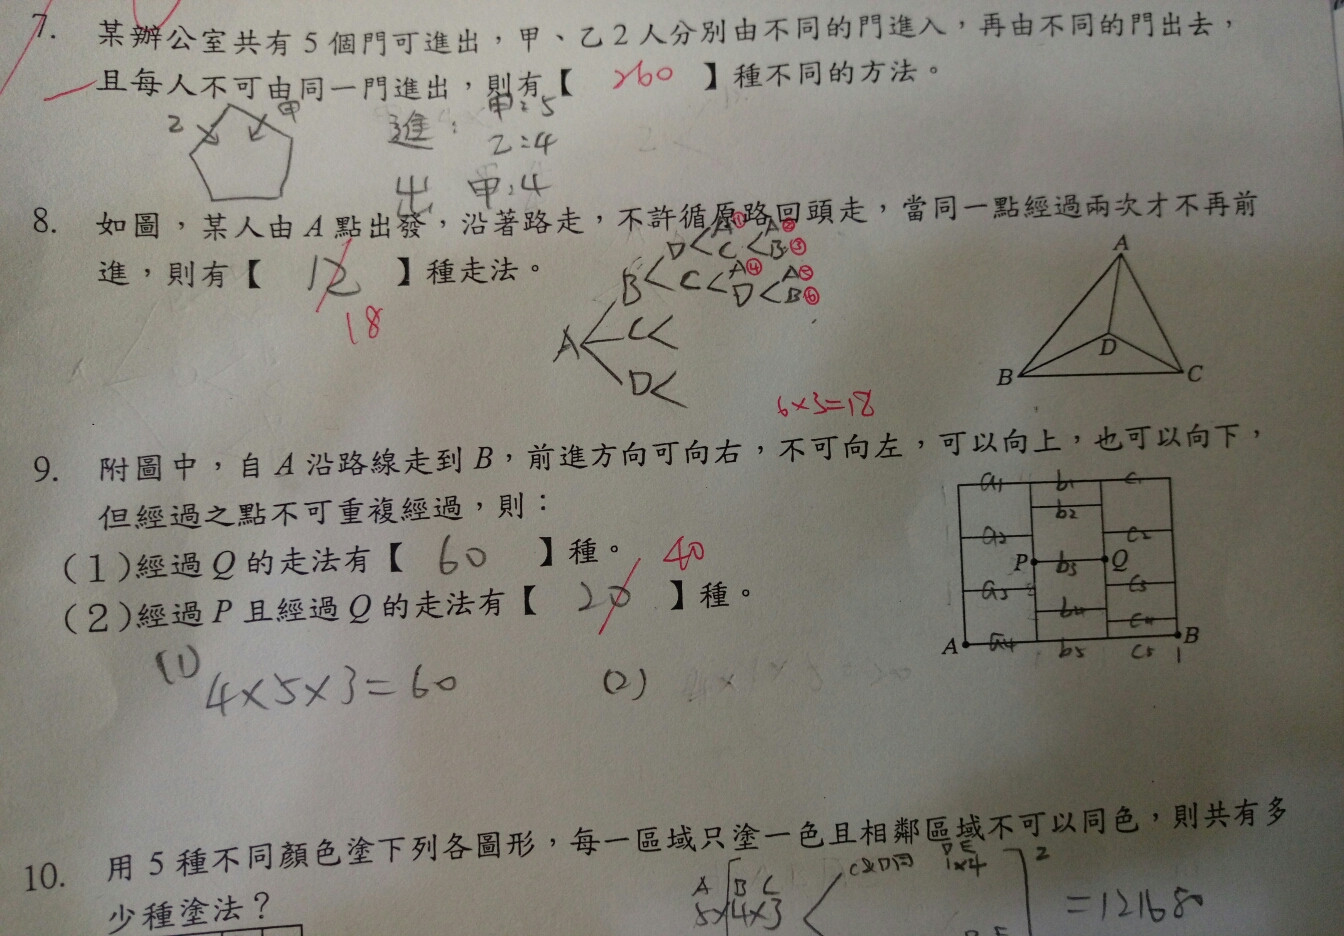 7. 某辦公室共有5個門可進出，甲、乙2人分別由不同的門進入，再由不同的門出去，
且每人不可由同一門進出，則有【 260 】種不同的方法。
乙 甲
進： 甲：5
乙：4
出 甲：4
8. 如圖，某人由A點出發，沿著路走，不許循原路回頭走，當同一點經過兩次才不再前
進，則有【 12 】種走法。
18
A B C D
D A① C A② B③
C A④ D A⑤ B⑥
6×3=18
A
D
B C
9. 附圖中，自A沿路線走到B，前進方向可向右，不可向左，可以向上，也可以向下，
但經過之點不可重複經過，則：
(1)經過Q的走法有【 60 】種。
(2)經過P且經過Q的走法有【 20 】種。 40
a1 b1 c1
b2
a2 c2
P b3 Q
a3 c3
b4 c4
A a4 b5 c5 B
(1) 4×5×3=60
(2)
10. 用5種不同顏色塗下列各圖形，每一區域只塗一色且相鄰區域不可以同色，則共有多
少種塗法？
A B C
5×4×3
C&D同
D E
1×4
2
=121680